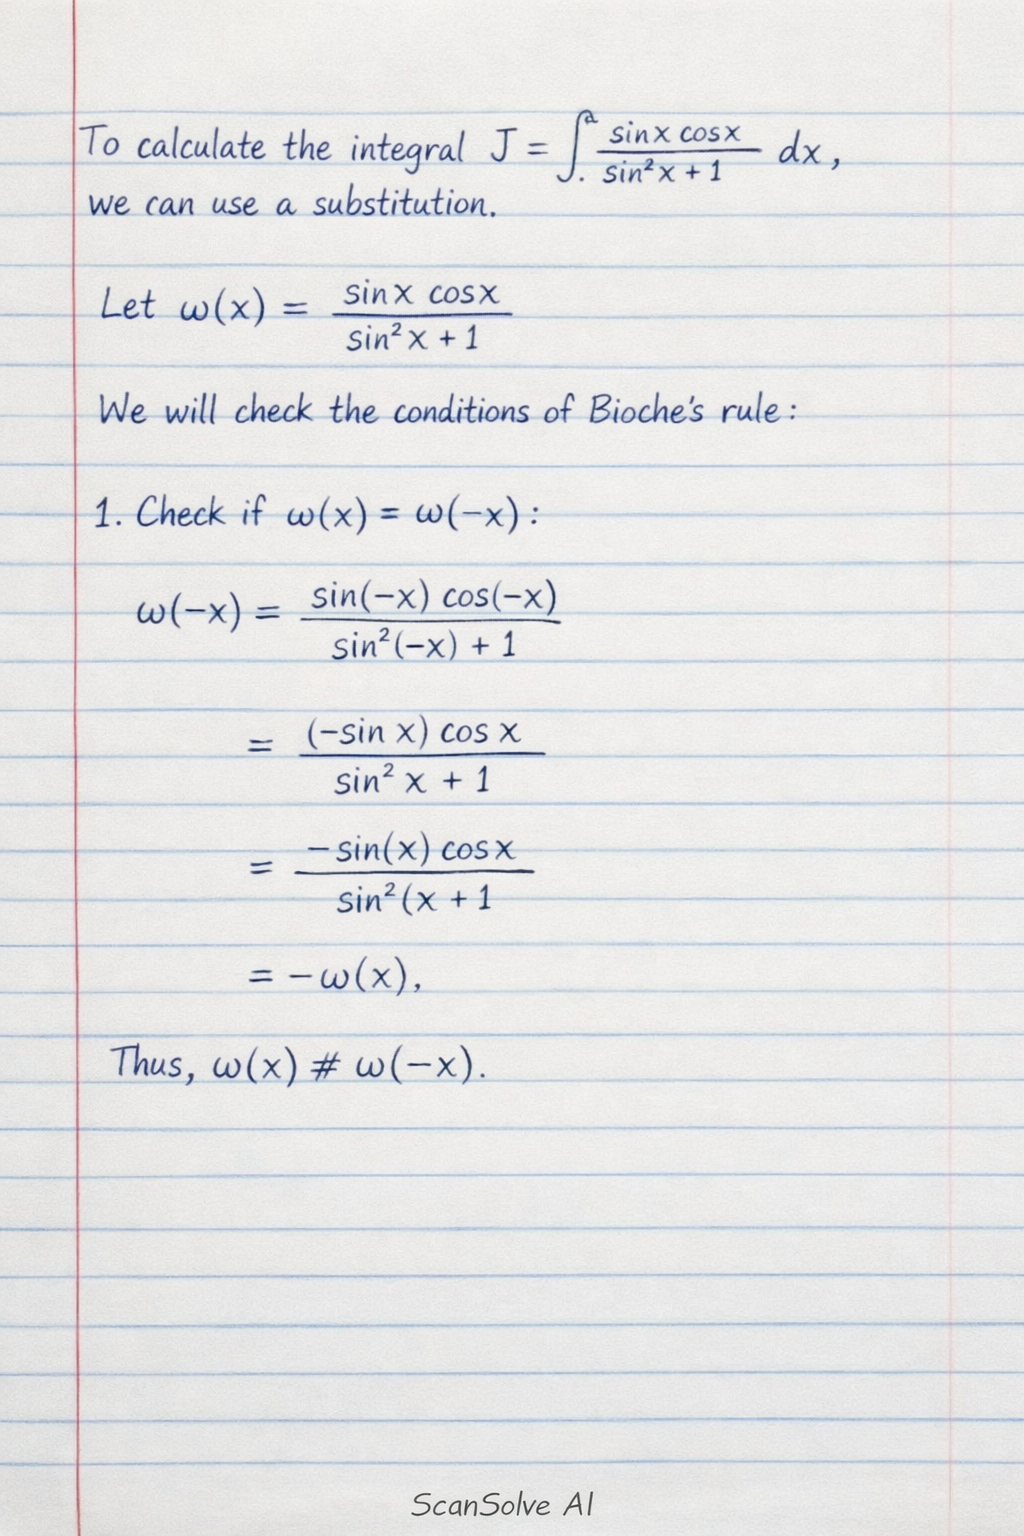 To calculate the integral J = ∫ₐ^. sinx cosx / sin²x + 1 dx,
we can use a substitution.
Let ω(x) = sinx cosx / sin²x + 1
We will check the conditions of Bioche's rule:
1. Check if ω(x) = ω(−x):
ω(−x) = sin(−x) cos(−x) / sin²(−x) + 1
= (−sin x) cos x / sin² x + 1
= −sin(x) cosx / sin²(x + 1
= −ω(x),
Thus, ω(x) # ω(−x).
ScanSolve AI